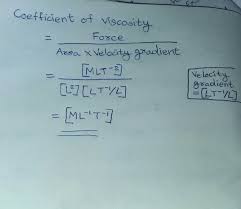 Coefficient of Viscosity
= Force
Area × Velocity gradient
= [MLT⁻²]
[L²][LT⁻¹/L]
Velocity
gradient
= [LT⁻¹/L]
= [ML⁻¹T⁻¹]